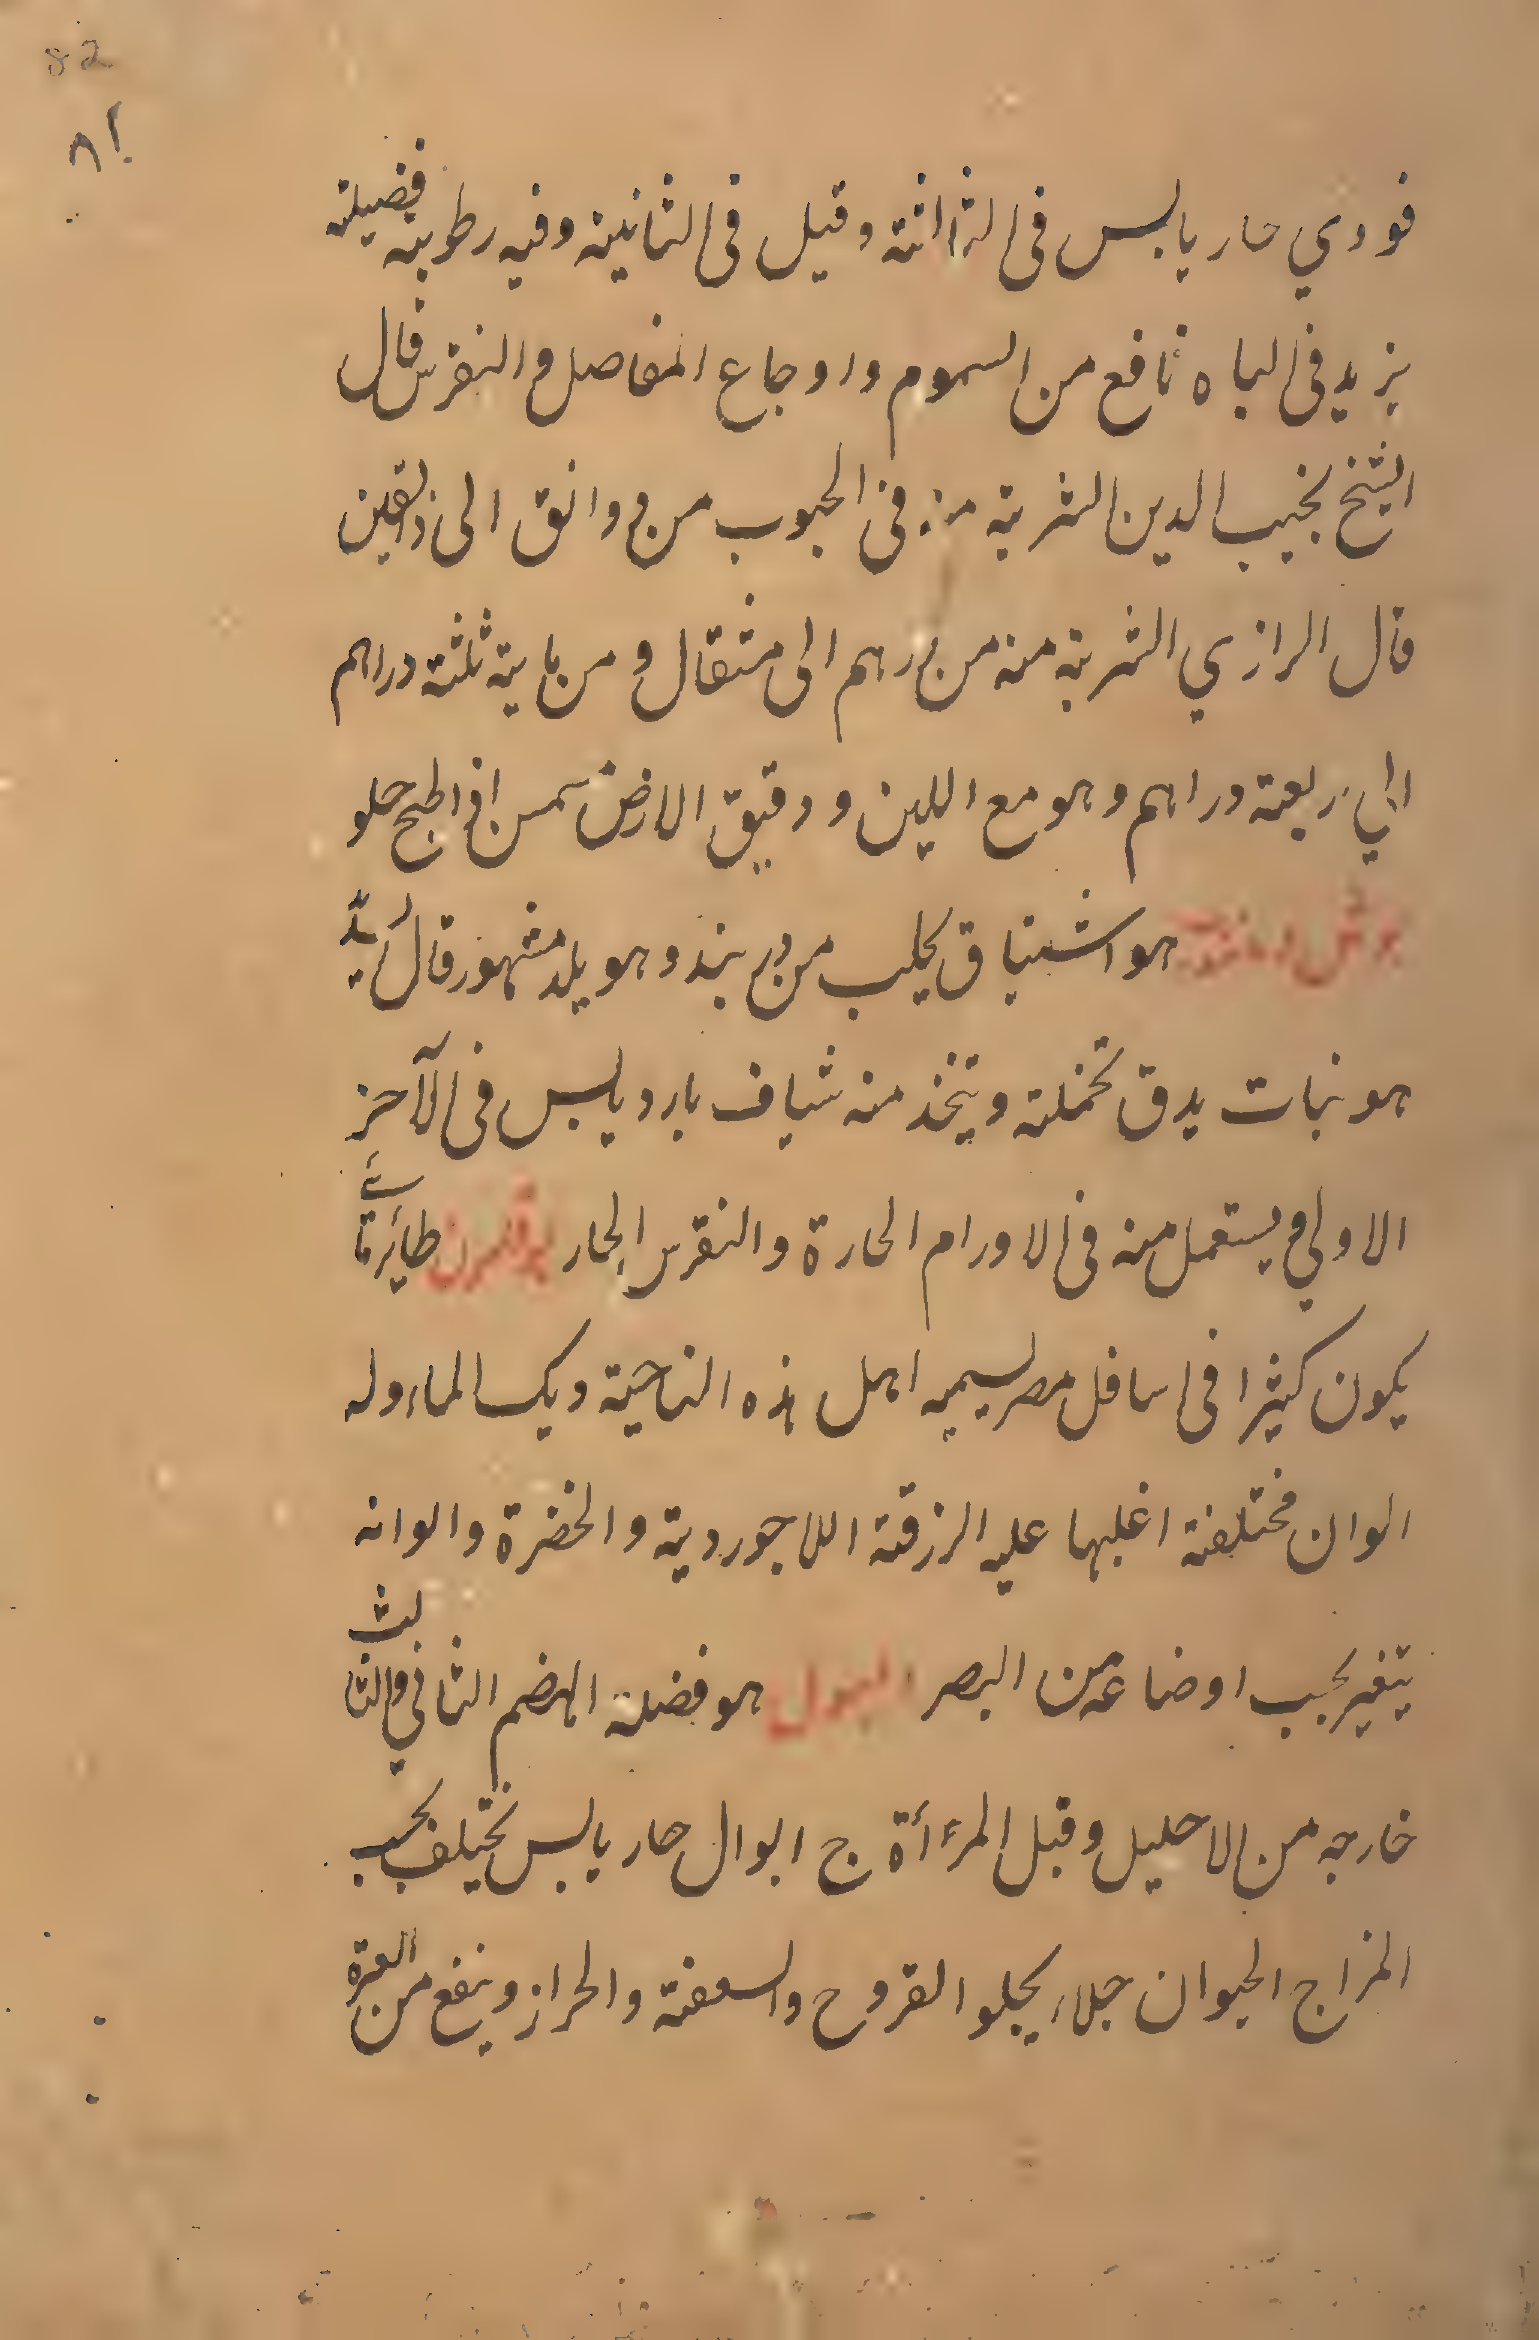 82
٨١
فودي حار يابس فى الثالثة وقيل فى الثانية وفيه رطوبة فضيلة
يزيد فى الباه نافع من السموم واوجاع المفاصل والنقرس قال
الشيخ نجيب الدين الشربة منه فى الحبوب من دانق الى دانقين
قال الرازي الشربة منه من درهم الى مثقال ومن مايية ثلثة دراهم
الي اربعة دراهم وهو مع اللبن ودقيق الارض سمن اذا طبخ حلو
بوش دربندى هو اشبناق يجلب من دربند وهو بلد مشهور قال
هو نبات يدق بجملته ويتخذ منه شياف بارد يابس فى الآخر
الاولي ويستعمل منه فى الاورام الحارة والنقرس الحار طائر مائي
يكون كثيرا فى اسافل مصر يسميه اهل هذه الناحية ديك الماء وله
الوان مختلفة اغلبها عليه الزرقة اللاجوردية والخضرة والوانه
يتغير بحسب اوضاعه من البصر البول هو فضلة الهضم الثاني والثالث
خارجه من الاحليل وقبل المرءأة ج ابوال حار يابس يختلف بحسب
المزاج الحيوان جلاء يجلو القروح والسعفة والحزاز وينفع من